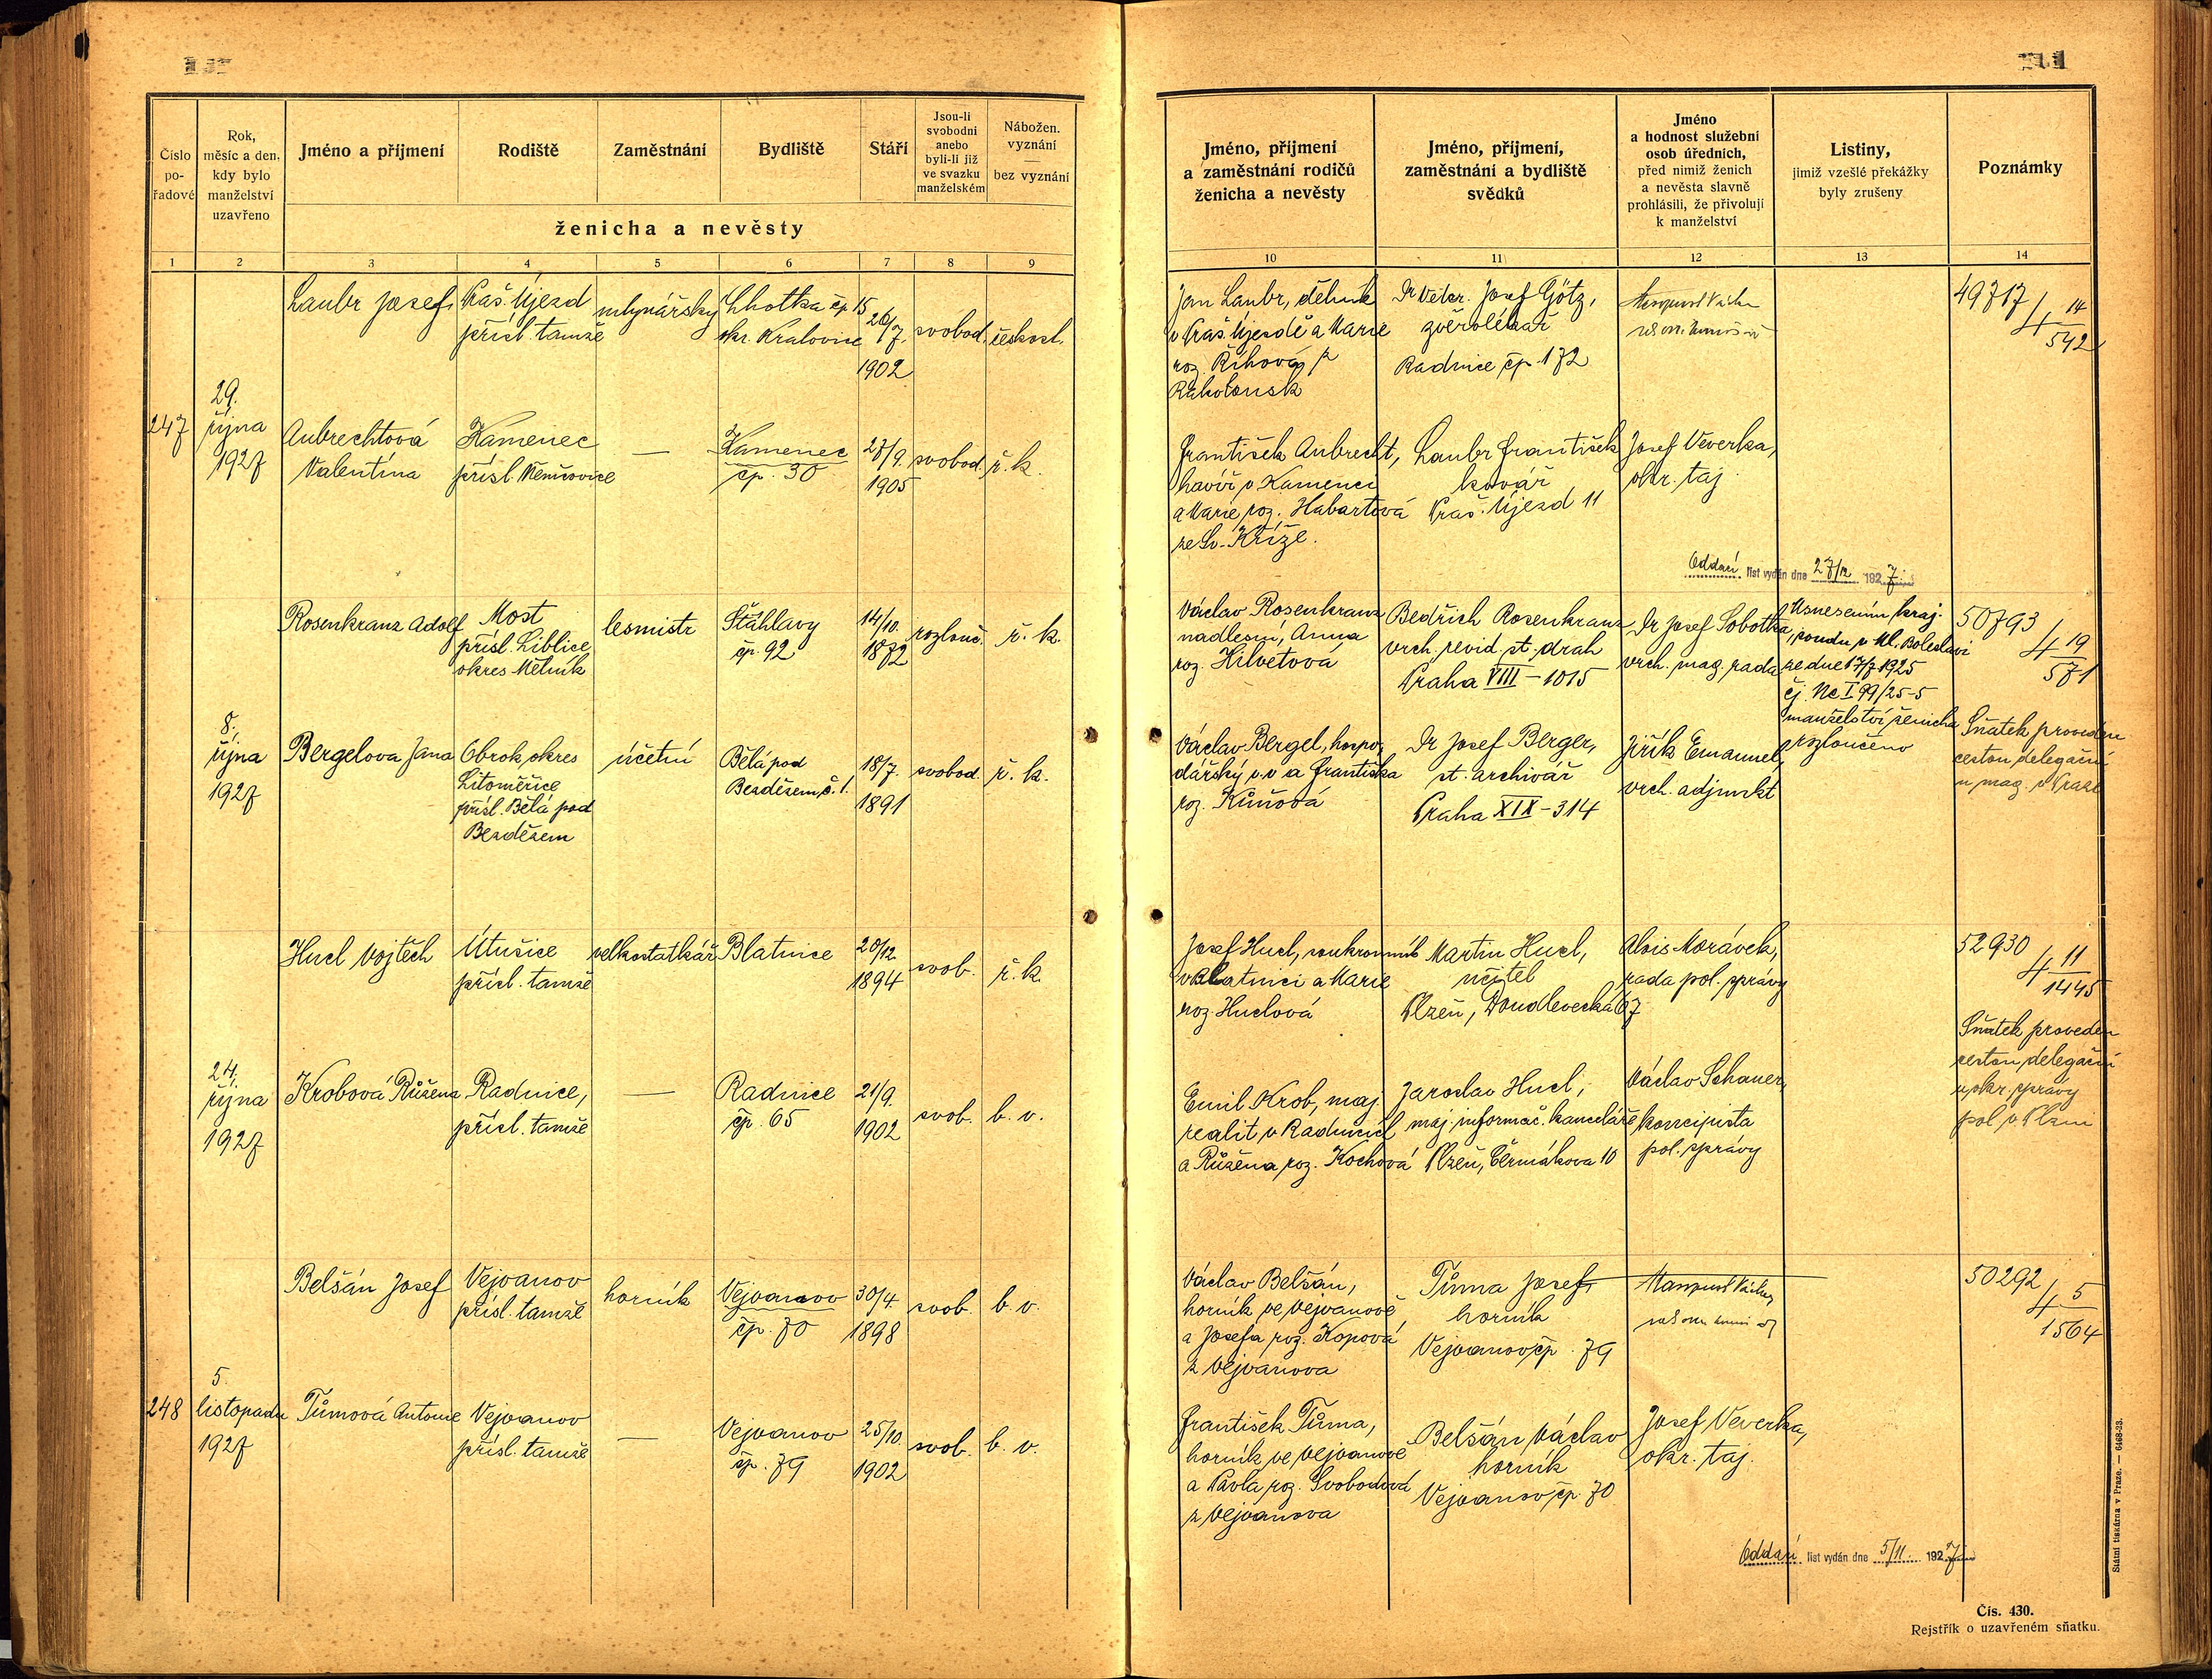 Číslo pořadové
Rok, měsíc a den, kdy bylo manželství uzavřeno
Jméno a příjmení
Rodiště
Zaměstnání
Bydliště
Stáří
Jsou-li svobodni anebo byli-li již ve svazku manželském
Nábožen. vyznání — bez vyznání
ženicha a nevěsty
1 2 3 4 5 6 7 8 9
Laubr Josef
Kraš. Újezd
přísl. tamže
mlynářský
Lhotka čp 15
okr. Kralovice
26/7.
1902
svobod.
českosl.
247
29.
října
1927
Aubrechtová
Valentina
Kamenec
přísl. Němčovice
—
Kamenec
čp. 30
27/9.
1905
svobod.
ř. k.
Rosenkranz Adolf
Most
přísl. Liblice
okres Mělník
lesmistr
Šťáhlavy
čp. 92
14/10.
1872
rozlouč.
ř. k.
8.
října
1927
Bergelova Jana
Obrok okres
Litoměřice
přísl. Bělá pod
Bezdězem
účetní
Bělá pod
Bezdězem č. 1.
18/7.
1891
svobod.
ř. k.
Hucl Vojtěch
Útušice
přísl. tamže
velkostatkář
Blatnice
20/12
1894
svob.
ř. k.
24.
října
1927
Krobová Růžena
Radnice,
přísl. tamže
—
Radnice
čp. 65
21/9.
1902
svob.
b. v.
Belšán Josef
Vejvanov
přísl. tamže
horník
Vejvanov
čp. 70
30/4.
1898
svob.
b. v.
248
5.
listopadu
1927
Tůmová Antonie
Vejvanov
přísl. tamže
—
Vejvanov
čp. 79
25/10
1902
svob.
b. v.
Jméno, příjmení a zaměstnání rodičů ženicha a nevěsty
Jméno, příjmení, zaměstnání a bydliště svědků
Jméno a hodnost služební osob úředních, před nimiž ženich a nevěsta slavně prohlásili, že přivolují k manželství
Listiny, jimiž vzešlé překážky byly zrušeny
Poznámky
10 11 12 13 14
Jan Laubr, dělník
v Kraš. Újezdě a Marie
roz. Říhová z
Dr Veter. Josef Götz,
zvěrolékař
Radnice čp. 172
49717
4 14/542
František Aubrecht,
havíř v Kamenci
a Marie roz. Habartová
ze Sv. Kříže.
Laubr František
kovář
Kraš. Újezd 11
Josef Veverka,
okr. taj.
Oddací list vydán dne 27/12 1927
Václav Rosenkranz
nadlesní, Anna
roz. Hilvetová
Bedřich Rosenkranz
vrch. revid. st. drah
Praha VIII – 1015
Dr Josef Sobotka,
vrch. mag. rada
Usnesením kraj.
soudu v Ml. Boleslavi
ze dne 17/7 1925
čj. Nc I 99/25-5
manželství ženicha
rozloučeno
50793
4 19/571
Václav Bergel, hospo-
dářský v. v. a Františka
roz. Kůňová
Dr Josef Berger,
st. archivář
Praha XIX – 314
Jiřík Emanuel,
vrch. adjunkt
Sňatek proveden
cestou delegační
u mag. v Praze
Josef Hucl, soukromník
v Blatnici a Marie
roz. Huclová
Martin Hucl,
učitel
Plzeň, Doudlevecká 67
Alois Morávek,
rada pol. správy
52930
4 11/1445
Emil Krob, maj.
realit v Radnicích
a Růžena roz. Kochová
Jaroslav Hucl,
maj. informač. kanceláře
Plzeň, Čermákova 10
Václav Schauer,
koncipista
pol. správy
Sňatek proveden
cestou delegační
u okr. správy
pol. v Plzni
Václav Belšán,
horník ve Vejvanově
a Josefa roz. Kopová
z Vejvanova
Tůma Josef,
horník
Vejvanov čp. 79
50292
4 5/1564
František Tůma,
horník ve Vejvanově
a Pavla roz. Svobodová
z Vejvanova
Belšán Václav
horník
Vejvanov čp. 70
Josef Veverka,
okr. taj.
Oddací list vydán dne 5/11. 1927
Státní tiskárna v Praze. — 6468-23.
Čís. 430.
Rejstřík o uzavřeném sňatku.